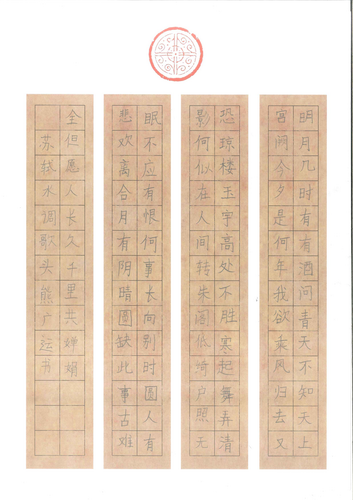 明月几时有有酒问青天不知天上
宫阙今夕是何年我欲乘风归去又
恐琼楼玉宇高处不胜寒起舞弄清
影何似在人间转朱阁低绮户照无
眠不应有恨何事长向别时圆人有
悲欢离合月有阴晴圆缺此事古难
全但愿人长久千里共婵娟
苏轼水调歌头熊书